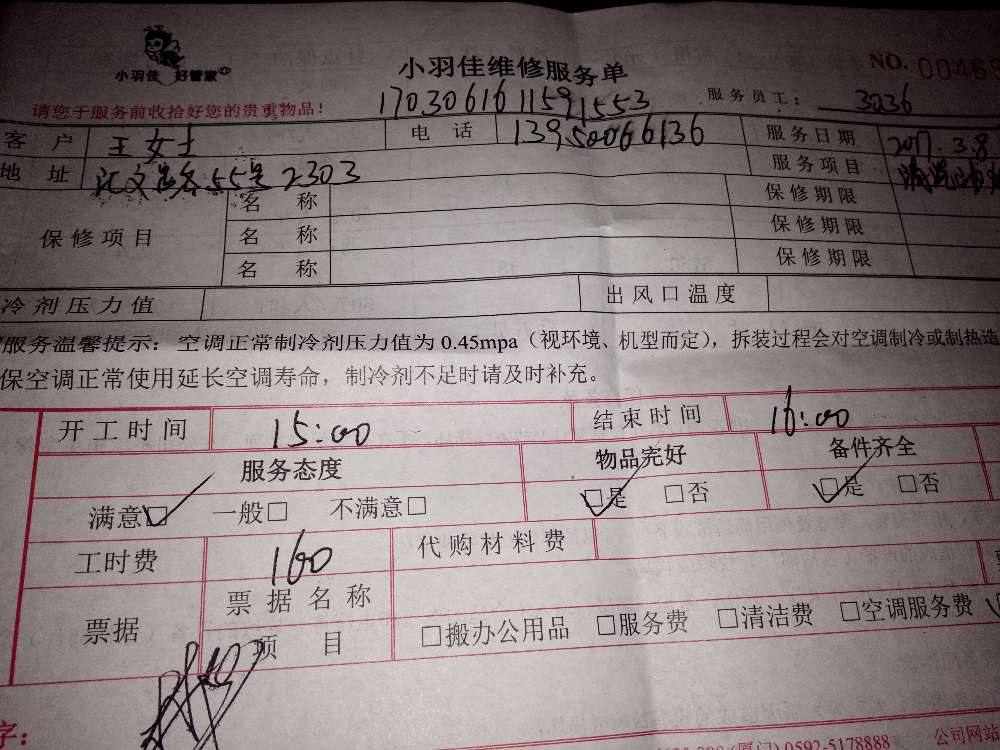 小羽佳 好管家
小羽佳维修服务单
NO. 00469
请您于服务前收拾好您的贵重物品！
1703061611591553
服务员工： 3036
客 户 王女士 电 话 13950066136 服务日期 2017.3.8
地 址 55号2303 服务项目
保修项目 名 称 保修期限
名 称 保修期限
名 称 保修期限
冷剂压力值 出风口温度
服务温馨提示：空调正常制冷剂压力值为 0.45mpa（视环境、机型而定），拆装过程会对空调制冷或制热造
保空调正常使用延长空调寿命，制冷剂不足时请及时补充。
开工时间 15:00 结束时间 16:00
服务态度 物品完好 备件齐全
满意□ 一般□ 不满意□ □是 □否 □是 □否
工时费 160 代购材料费
票据 票据名称
项 目 □搬办公用品 □服务费 □清洁费 □空调服务费
字：
(厦门) 0592-5178888 公司网站